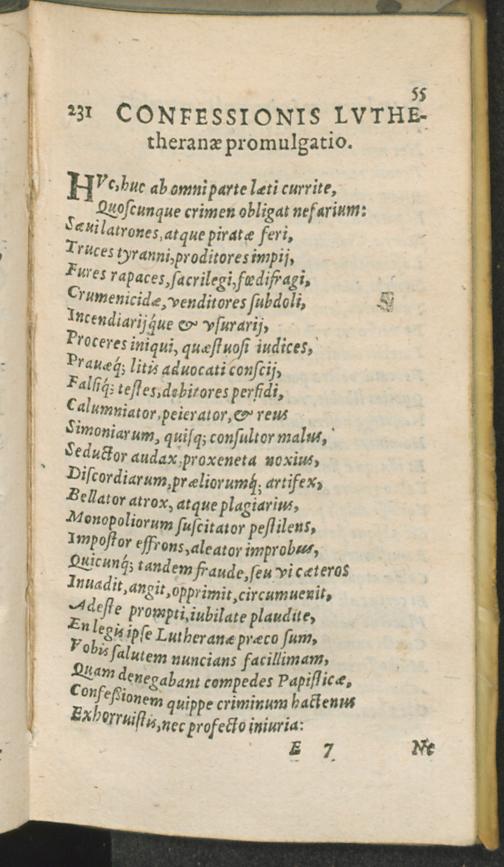 55
231 CONFESSIONIS LVTHE-
theranæ promulgatio.
HVc, huc ab omni parte læti currite,
Quoſcunque crimen obligat nefarium:
Sæui latrones, atque piratæ feri,
Truces tyranni, proditores impij,
Fures rapaces, ſacrilegi, fœdifragi,
Crumenicidæ, venditores ſubdoli,
Incendiarijq́ue & vſurarij,
Proceres iniqui, quæſtuoſi iudices,
Prauæq́; litis aduocati conſcij,
Falſiq́; teſtes, debitores perfidi,
Calumniator, peierator, & reus
Simoniarum, quiſq; conſultor malus,
Seductor audax, proxeneta noxius,
Diſcordiarum, præliorumq́; artifex,
Bellator atrox, atque plagiarius,
Monopoliorum ſuſcitator peſtilens,
Impoſtor effrons, aleator improbus,
Quicunq́; tandem fraude, ſeu vi cæteros
Inuadit, angit, opprimit, circumuenit,
Adeſte prompti, iubilate plaudite,
En legis ipſe Lutheranæ præco ſum,
Vobis ſalutem nuncians facillimam,
Quam denegabant compedes Papiſticæ,
Confeſsionem quippe criminum hactenus
Exhorruiſtis, nec profecto iniuria:
E 7 Ne